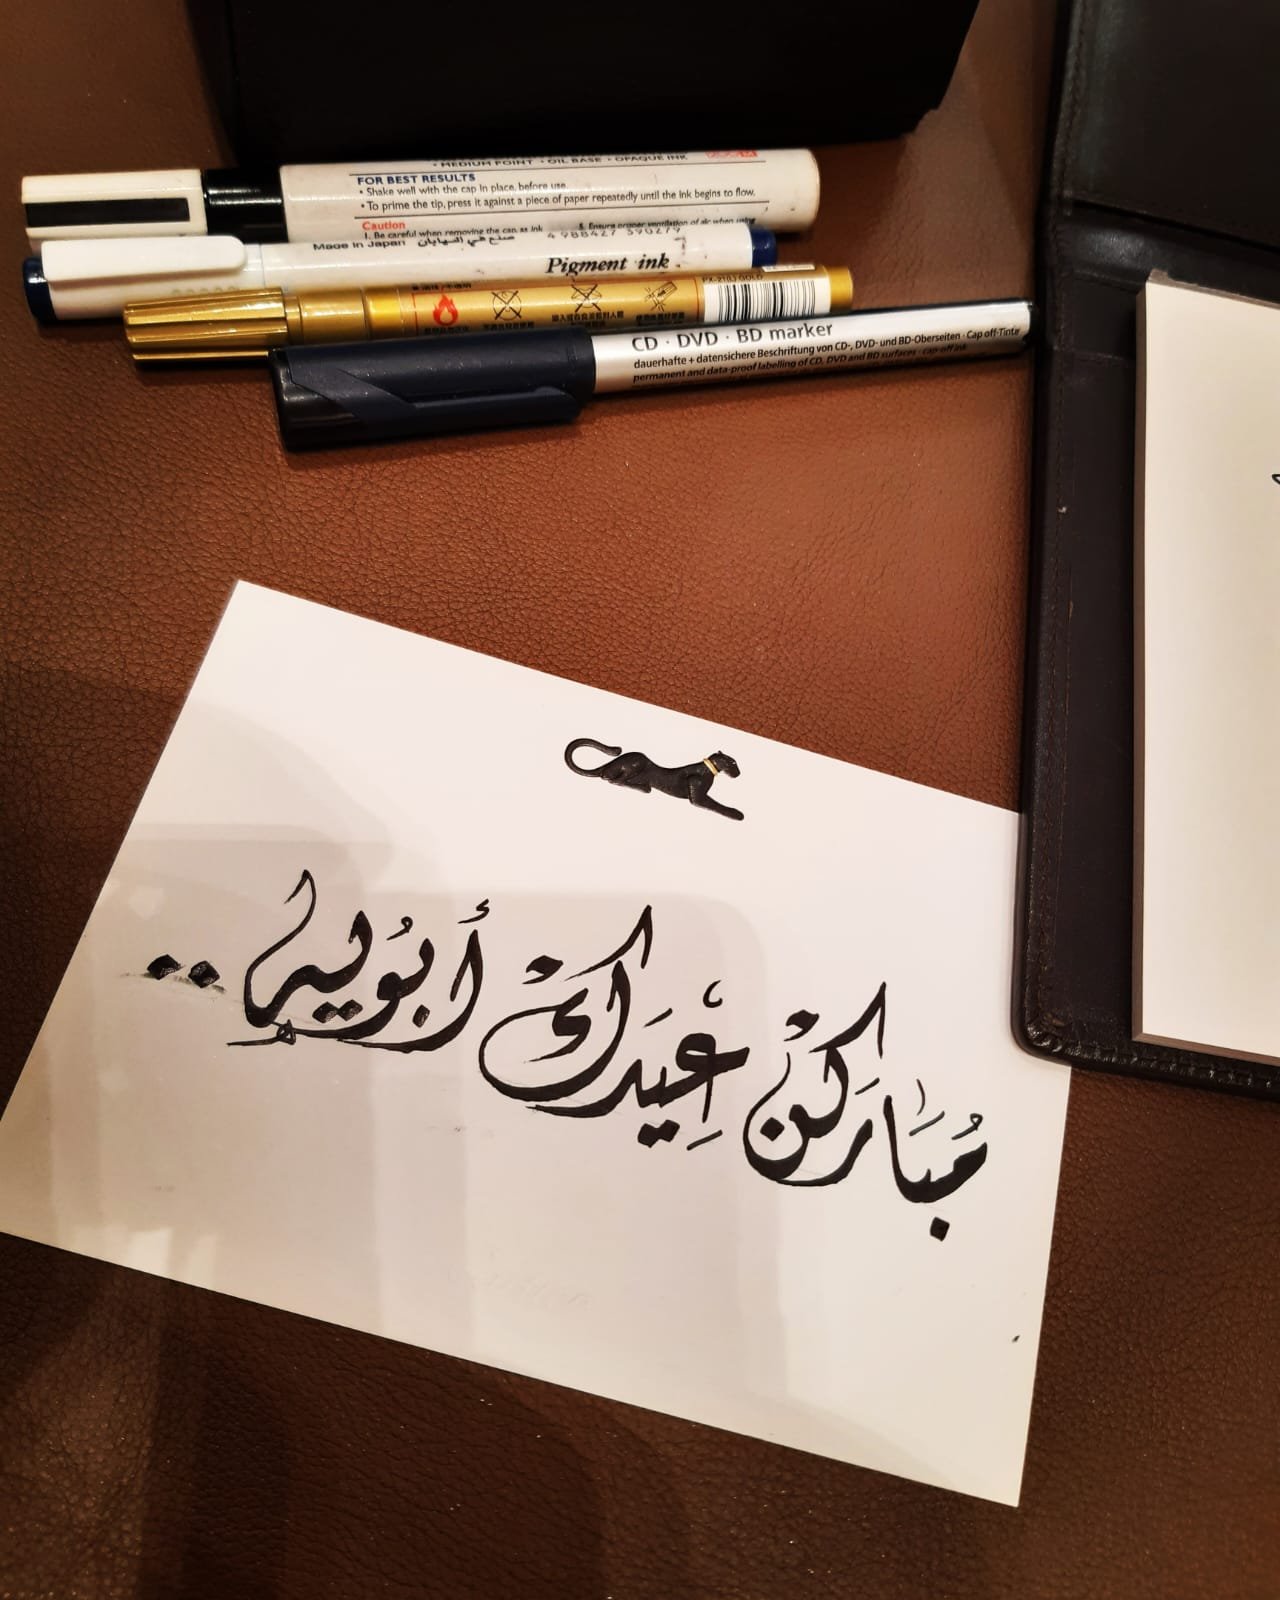 • MEDIUM POINT • OIL BASE • OPAQUE INK
FOR BEST RESULTS
• Shake well with the cap in place, before use.
• To prime the tip, press it against a piece of paper repeatedly until the ink begins to flow.
Caution
1. Be careful when removing the cap, as ink
Made in Japan صنع في اليابان 4 988427 390279
Pigment ink
CD · DVD · BD marker
dauerhafte + datensichere Beschriftung von CD-, DVD- und BD-Oberseiten · Cap off-Tinte
permanent and data-proof labelling of CD, DVD and BD surfaces · cap off ink
مُبَارَكنْ عِيدَكْ أبُويه ..